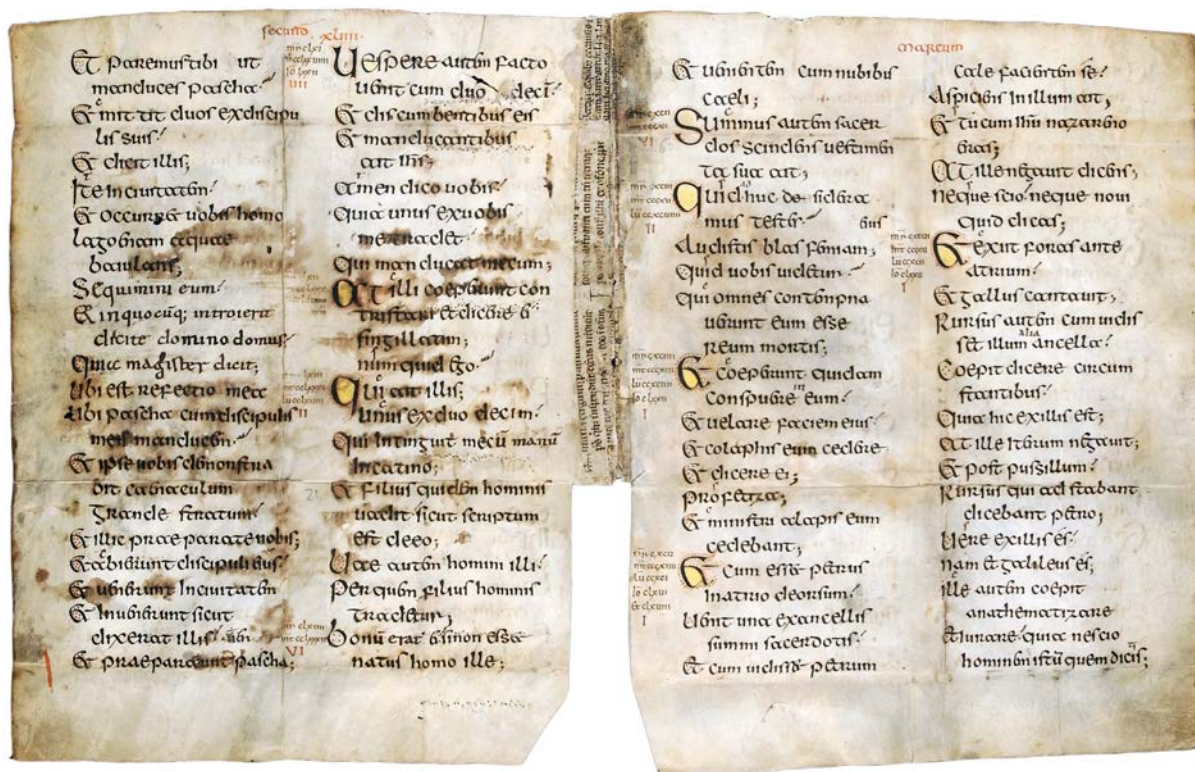 secund
xliiii
Et paremus tibi ut
manduces pascha
Et mittit duos ex discipu
lis suis
Et dicit illis;
Ite in ciuitatem
Et occurret uobis homo
lagoenam aquae
baiulans;
Sequimini eum
Et in quocuq; introierit
dicite domino domus
Quia magister dicit;
Ubi est refectio mea
Ubi pascha cum discipulis
meis manducem
Et ipse uobis demonstra
bit cenaculum
grande stratum
Et illic praeparate uobis;
Et abierunt discipuli eius
Et uenerunt in ciuitatem
Et inuenerunt sicut
dixerat illis
Et praeparauerunt pascha;
Uespere autem facto
uenit cum duodeci
Et discumbentibus eis
Et manducantibus
ait ihs;
Amen dico uobis
Quia unus ex uobis
me tradet
Qui manducat mecum;
At illi coeperunt con
tristari et dicere ei
singillatim;
numquid ego
Qui ait illis;
Unus ex duodecim
Qui intinguit mecū manū
in catino;
Et filius quidem hominis
uadit sicut scriptum
est de eo;
Uae autem homini illi
Per quem filius hominis
tradetur;
Bonū erat ei si non esset
natus homo ille;
marcum
Et uenientem cum nubibus
caeli;
Summus autem sacer
dos scindens uestimen
ta sua ait;
Quid adhuc desidera
mus testes
Audistis blasfemiam;
Quid uobis uidetur
Qui omnes condempna
uerunt eum esse
reum mortis;
Et coeperunt quidam
conspuere eum
Et uelare faciem eius
Et colaphis eum cedere
Et dicere ei;
Profetiza;
Et ministri alapis eum
cedebant;
Et cum esset petrus
in atrio deorsum
Uenit una ex ancellis
summi sacerdotis
Et cum uidisset petrum
cale facientem se
Aspiciens in illum ait;
Et tu cum ihu nazareno
eras;
At ille negauit dicens;
Neque scio neque noui
quid dicas;
Et exiit foras ante
atrium
Et gallus cantauit;
Rursus autem cum uidis
set illum alia ancella
Coepit dicere circum
stantibus
Quia hic ex illis est;
At ille iterum negauit;
Et post pussillum
Rursus qui adstabant
dicebant petro;
Uere ex illis es
nam et galileus es;
Ille autem coepit
anathematizare
Et iurare quia nescio
hominem istū quem dicitis;